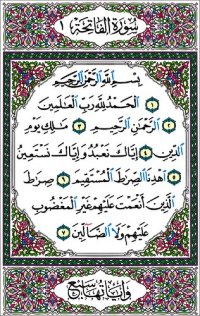 سُورَةُ الْفَاتِحَةِ ١
بِسْمِ اللَّهِ الرَّحْمَٰنِ الرَّحِيمِ
١ الْحَمْدُ لِلَّهِ رَبِّ الْعَٰلَمِينَ
٢ الرَّحْمَٰنِ الرَّحِيمِ ٣ مَٰلِكِ يَوْمِ
الدِّينِ ٤ إِيَّاكَ نَعْبُدُ وَإِيَّاكَ نَسْتَعِينُ
٥ اهْدِنَا الصِّرَٰطَ الْمُسْتَقِيمَ ٦ صِرَٰطَ
الَّذِينَ أَنْعَمْتَ عَلَيْهِمْ غَيْرِ الْمَغْضُوبِ
عَلَيْهِمْ وَلَا الضَّالِّينَ ٧
وَآيَاتُهَا سَبْعٌ